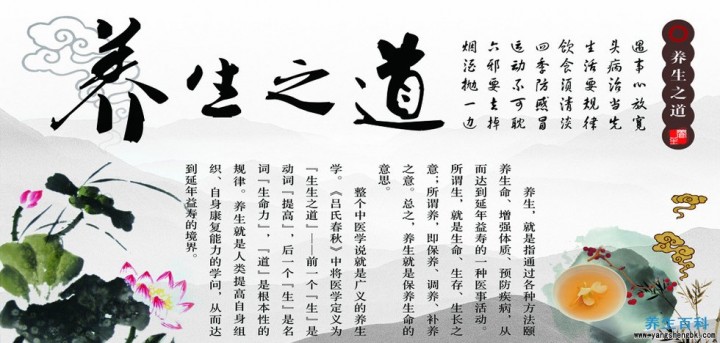 养生之道
遇事心放宽
头病治当先
生活要规律
饮食须清淡
四季防感冒
运动不可耽
六邪要去掉
烟酒抛一边
养生之道
养生，就是指通过各种方法颐
养生命、增强体质、预防疾病，从
而达到延年益寿的一种医事活动。
所谓生，就是生命、生存、生长之
意；所谓养，即保养、调养、补养
之意。总之，养生就是保养生命的
意思。
整个中医学说就是广义的养生
学。《吕氏春秋》中将医学定义为
『生生之道』——前一个『生』是
动词『提高』，后一个『生』是名
词『生命力』，『道』是根本性的
规律。养生就是人类提高自身组
织、自身康复能力的学问，从而达
到延年益寿的境界。
养生百科
www.yangshengbk.com